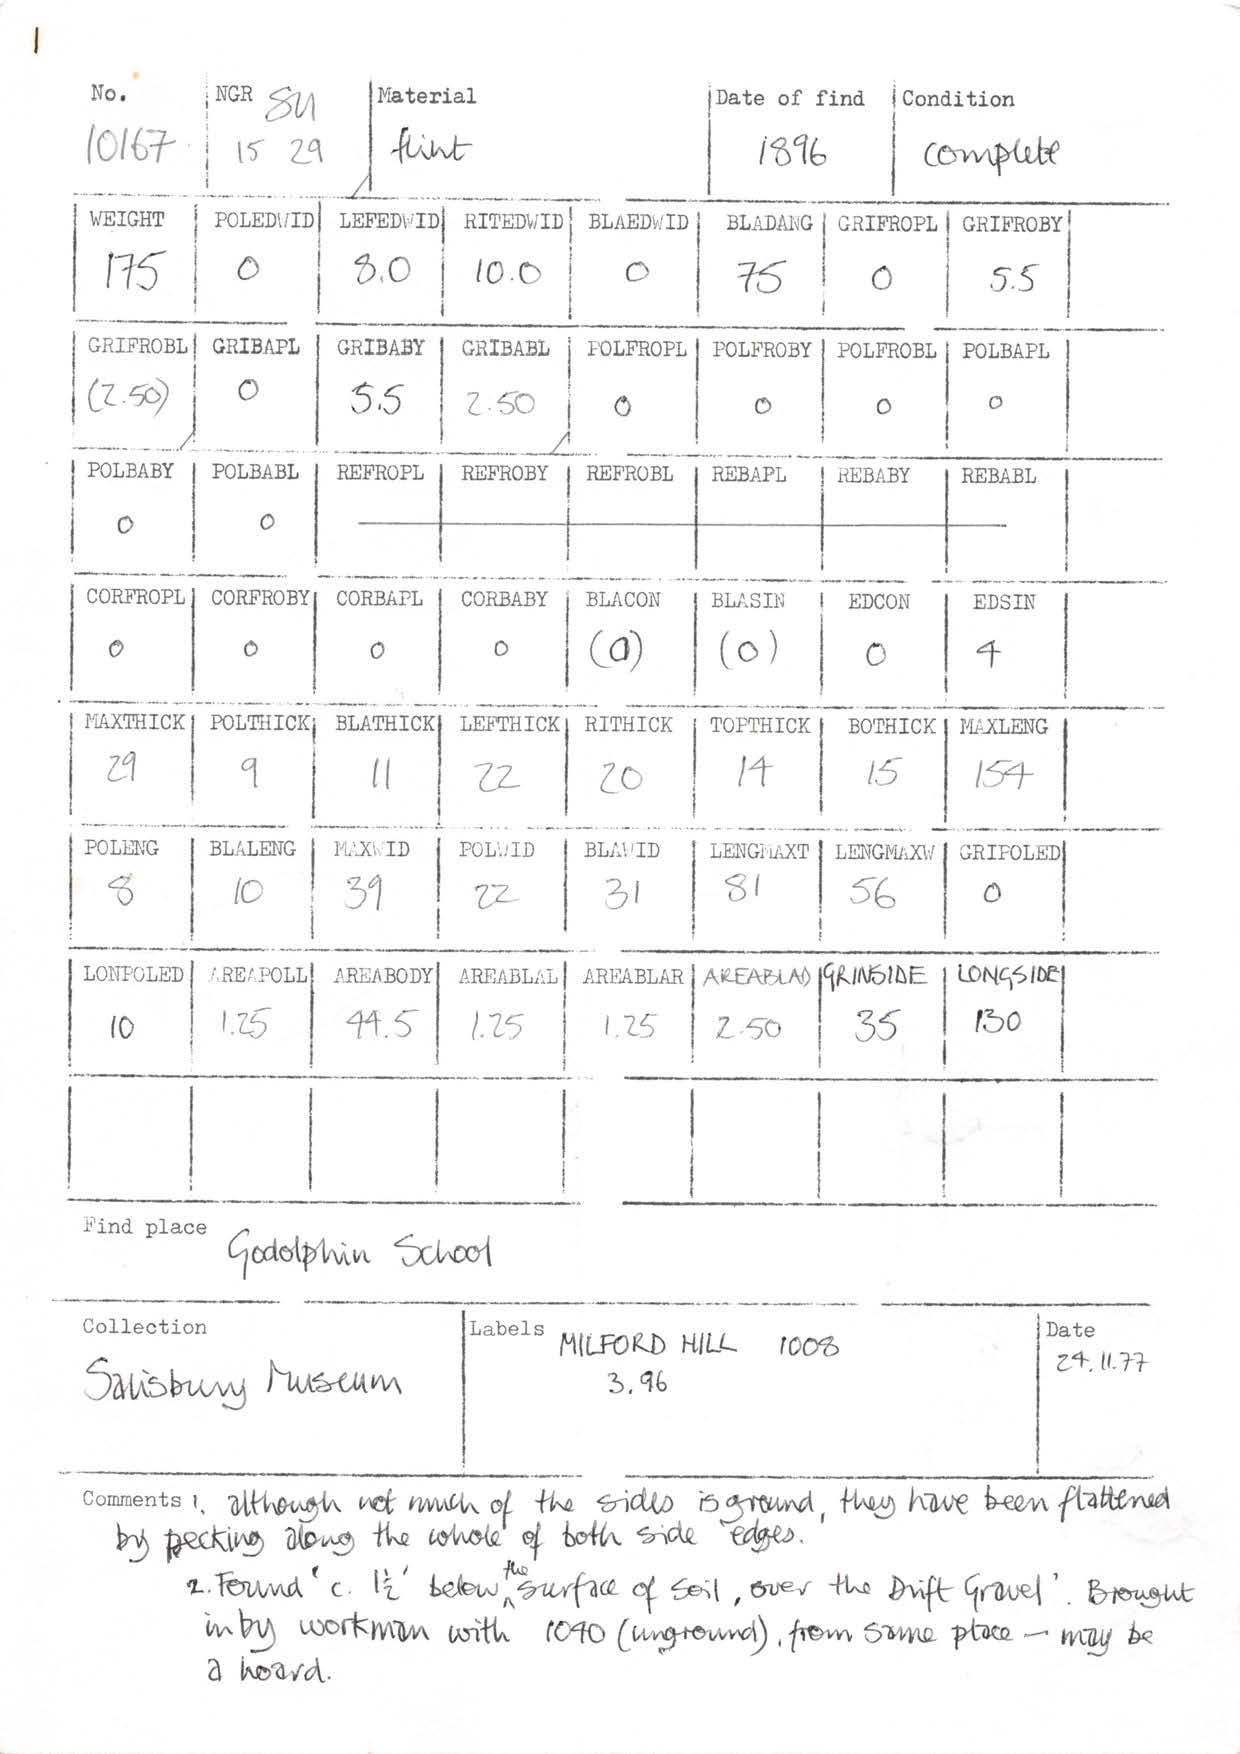 No. NGR SU Material Date of find Condition
10167 15 29 flint 1896 complete
WEIGHT POLEDWID LEFEDWID RITEDWID BLAEDWID BLADANG GRIFROPL GRIFROBY
175 0 8.0 10.0 0 75 0 5.5
GRIFROBL GRIBAPL GRIBABY GRIBABL POLFROPL POLFROBY POLFROBL POLBAPL
(2.50) 0 5.5 2.50 0 0 0 0
POLBABY POLBABL REFROPL REFROBY REFROBL REBAPL REBABY REBABL
0 0
CORFROPL CORFROBY CORBAPL CORBABY BLACON BLASIN EDCON EDSIN
0 0 0 0 (0) (0) 0 4
MAXTHICK POLTHICK BLATHICK LEFTHICK RITHICK TOPTHICK BOTHICK MAXLENG
29 9 11 22 20 14 15 154
POLENG BLALENG MAXWID POLWID BLAWID LENGMAXT LENGMAXW GRIPOLED
8 10 39 22 31 81 56 0
LONPOLED AREAPOLL AREABODY AREABLAL AREABLAR AREABLAD GRINSIDE LONGSIDE
10 1.25 44.5 1.25 1.25 2.50 35 130
Find place Godolphin School
Collection Labels MILFORD HILL 1008 Date
Salisbury Museum 3.96 24.11.77
Comments 1. although not much of the sides is ground, they have been flattened
by pecking along the whole of both side edges.
2. Found 'c. 1½' below the surface of soil, over the Drift Gravel'. Brought
in by workman with 1040 (unground), from same place – may be
a hoard.